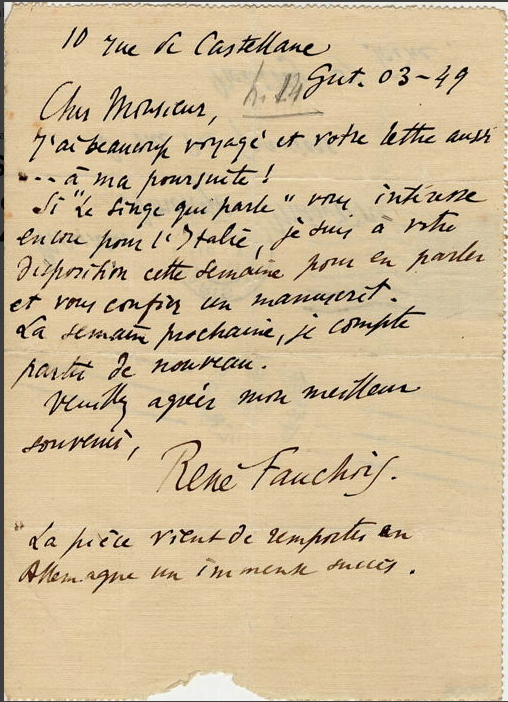 10 rue de Castellane
Gut. 03-49
Cher Monsieur,
J'ai beaucoup voyagé et votre lettre aussi
--- à ma poursuite !
Si "Le Singe qui parle" vous intéresse
encore pour l'Italie, je suis à votre
disposition cette semaine pour en parler
et vous confier un manuscrit.
La semaine prochaine, je compte
partir de nouveau.
Veuillez agréer mon meilleur
souvenir,
René Fauchois.
La pièce vient de remporter en
Allemagne un immense succès.